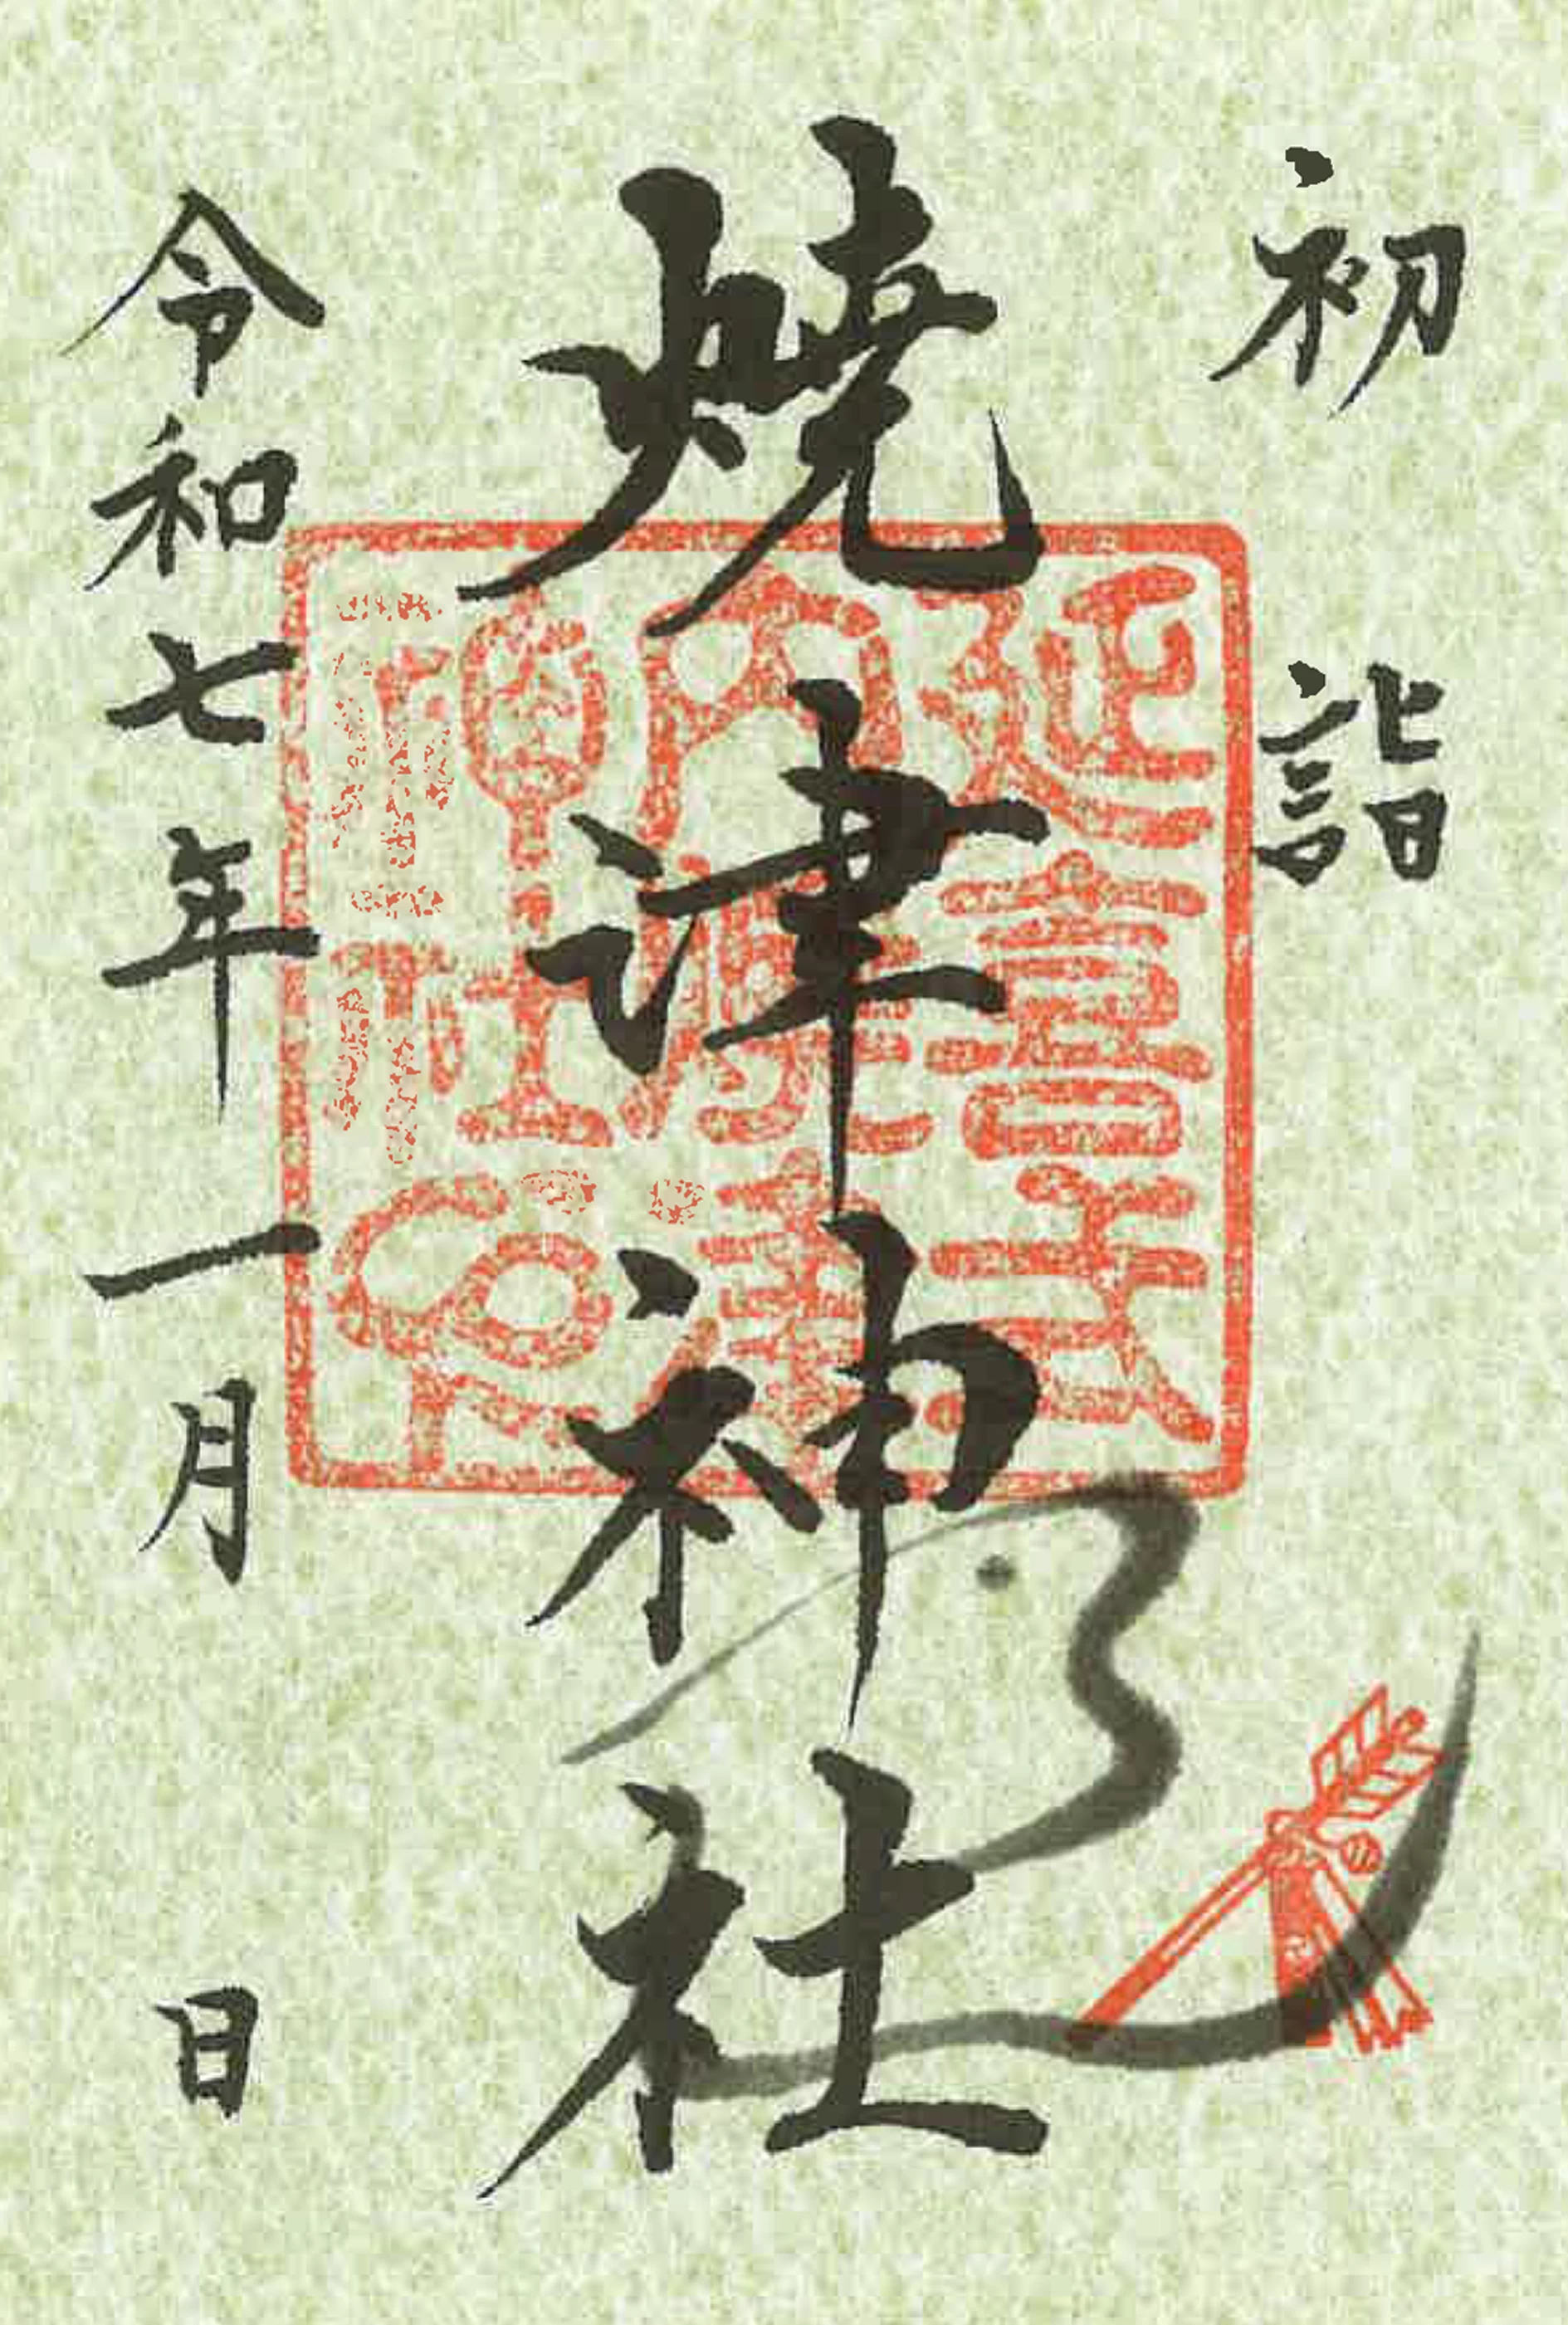 初詣
焼津神社
延喜式
内焼津
神社印
令和七年一月 日